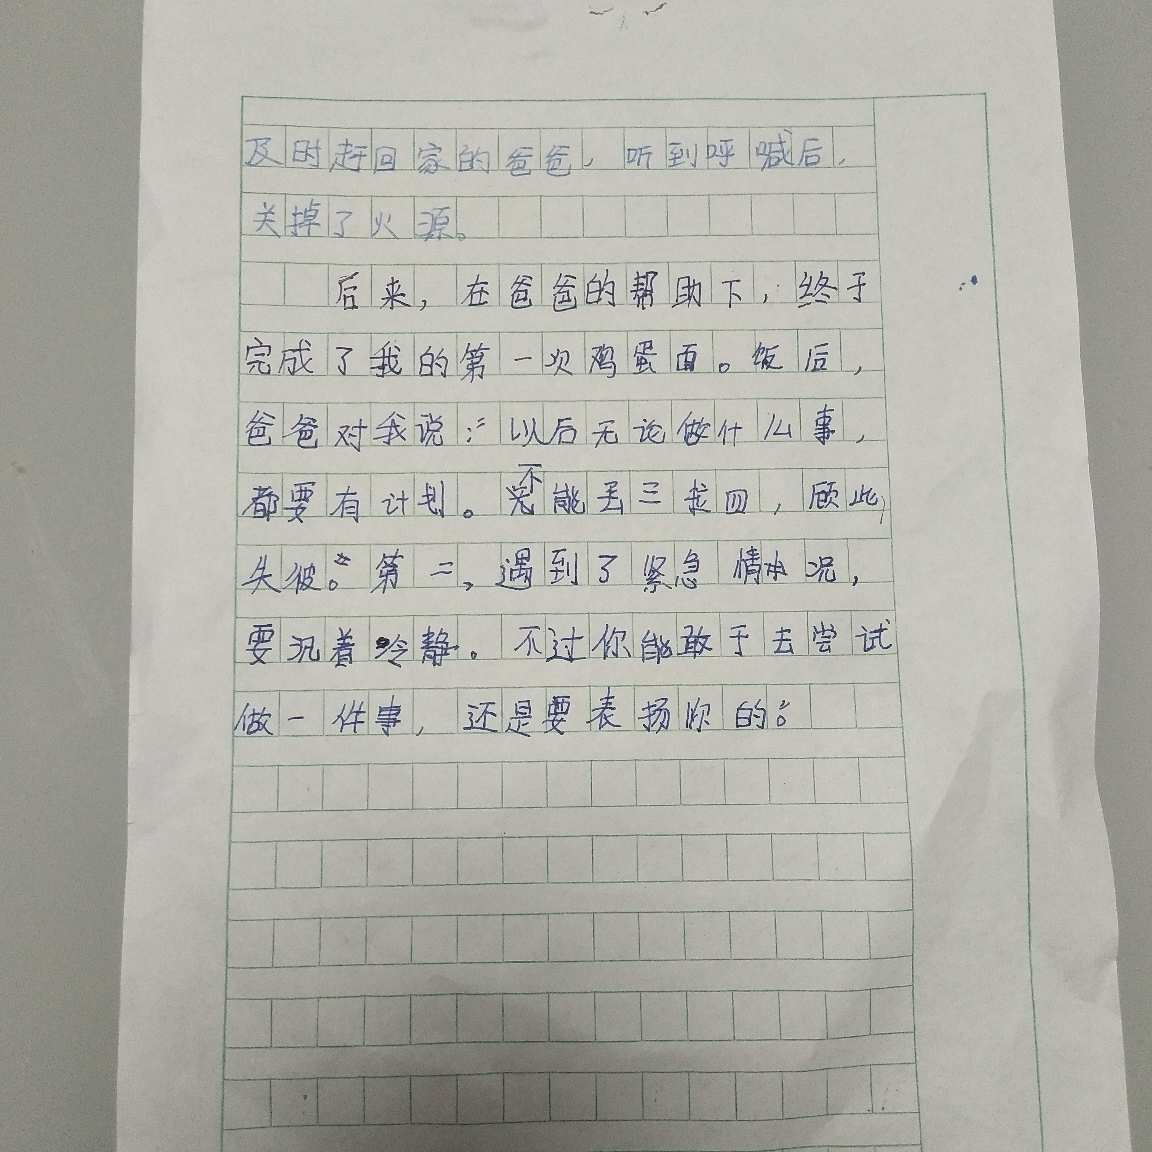 及时赶回家的爸爸，听到呼喊后，
关掉了火源。
后来，在爸爸的帮助下，终于
完成了我的第一次鸡蛋面。饭后，
爸爸对我说：“以后无论做什么事，
都要有计划。不能丢三拉四，顾此
失彼。”第二，遇到了紧急情况，
要沉着冷静。不过你能敢于去尝试
做一件事，还是要表扬你的。”